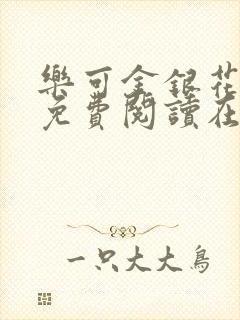 樂可金銀花
免費閱讀在
一只大大鳥